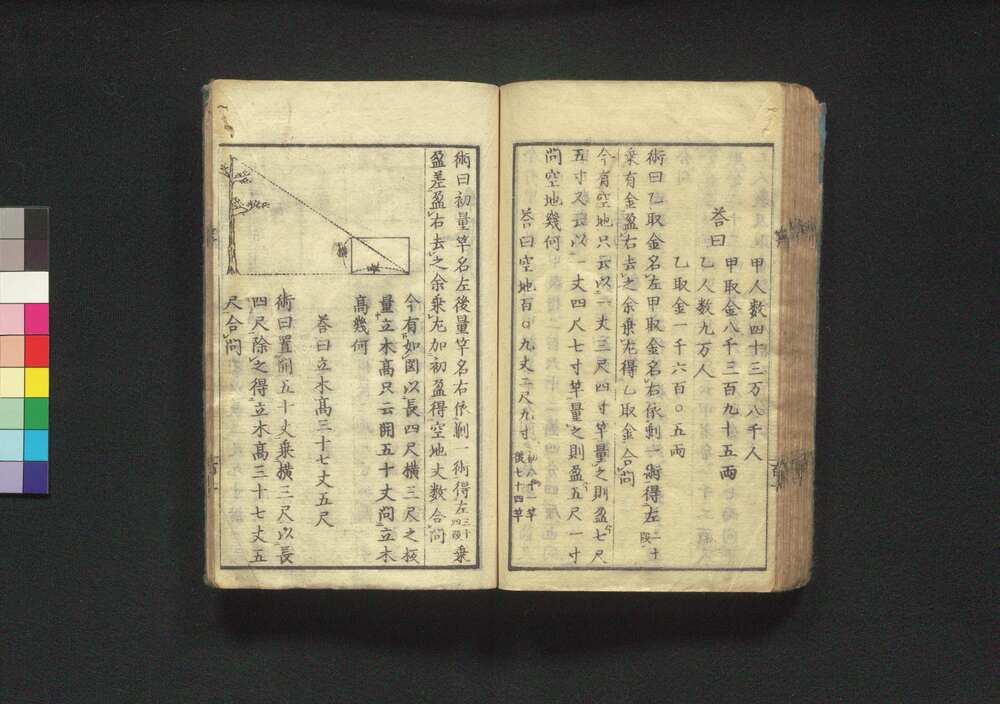 甲人数四十三万八千人
甲取金八千三百九十五両
答曰
乙人数九万人
乙取金一千六百〇五両
術曰乙取金名左甲取金名右依剰一術得左二十段
乗有金盈右去之余乗左得乙取金合問
今有空地只云以一丈三尺四寸竿量之則盈七尺
五寸又云以一丈四尺七寸竿量之則盈五尺一寸
問空地幾何
答曰空地百〇九丈二尺九寸
初八十一竿
後七十四竿
術曰初量竿名左後量竿名右依剰一術得左三十四段乗
盈差盈右去之余乗左加初盈得空地丈数合問
今有如図以長四尺横三尺之板
量立木高只云開五十丈問立木
高幾何
答曰立木高三十七丈五尺
術曰置開五十丈乗横三尺以長
四尺除之得立木高三十七丈五
尺合問
板